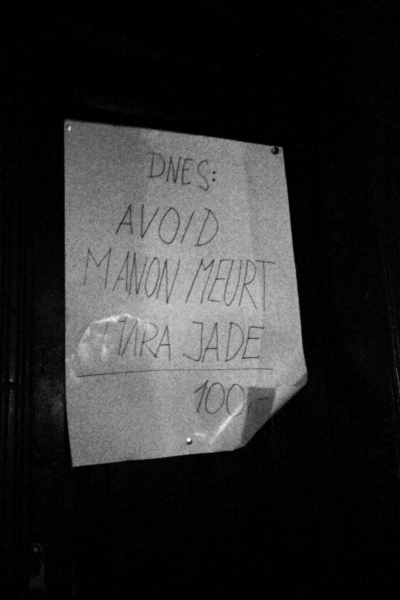 DNES:
AVOID
MANON MEURT
JADE
100